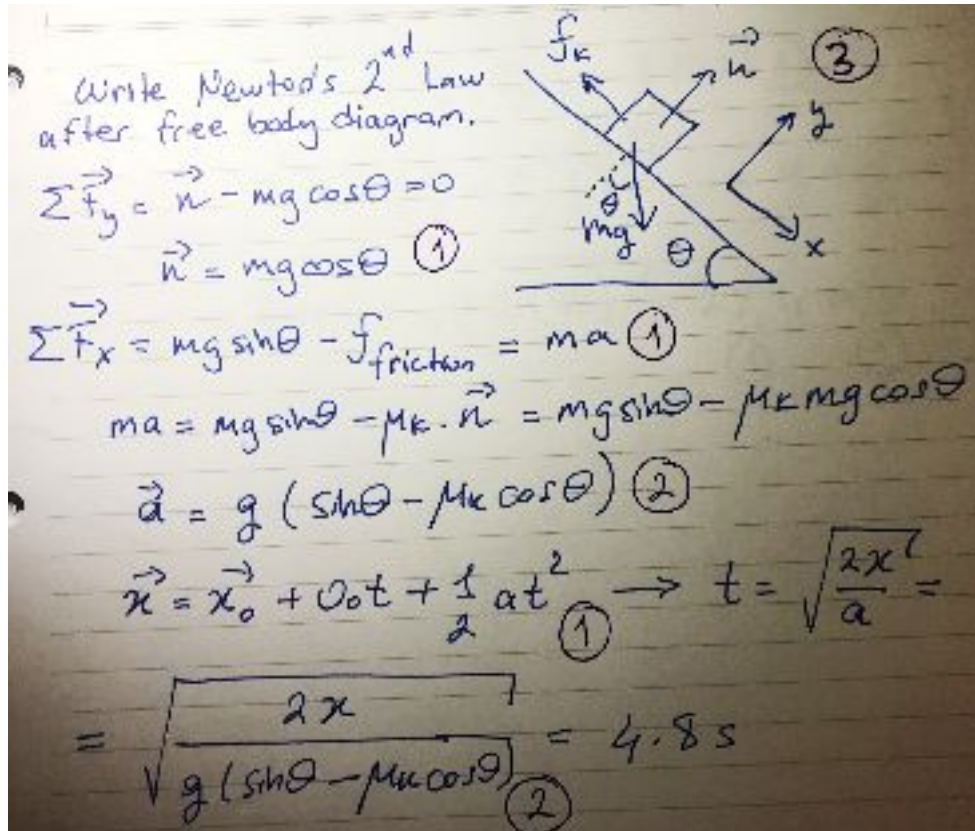 Write Newton's 2nd Law
after free body diagram.
f⃗k
n⃗
③
y
x
θ
mg
θ
ΣF⃗y = n⃗ - mg cosθ = 0
n⃗ = mg cosθ ①
ΣF⃗x = mg sinθ - f friction = ma ①
ma = mg sinθ - μk . n⃗ = mg sinθ - μk mg cosθ
a⃗ = g ( sinθ - μk cosθ ) ②
x⃗ = x⃗₀ + υ₀t + 1/2 at² ① → t = √(2x/a) =
= √(2x / g(sinθ - μk cosθ)) ② = 4.8 s